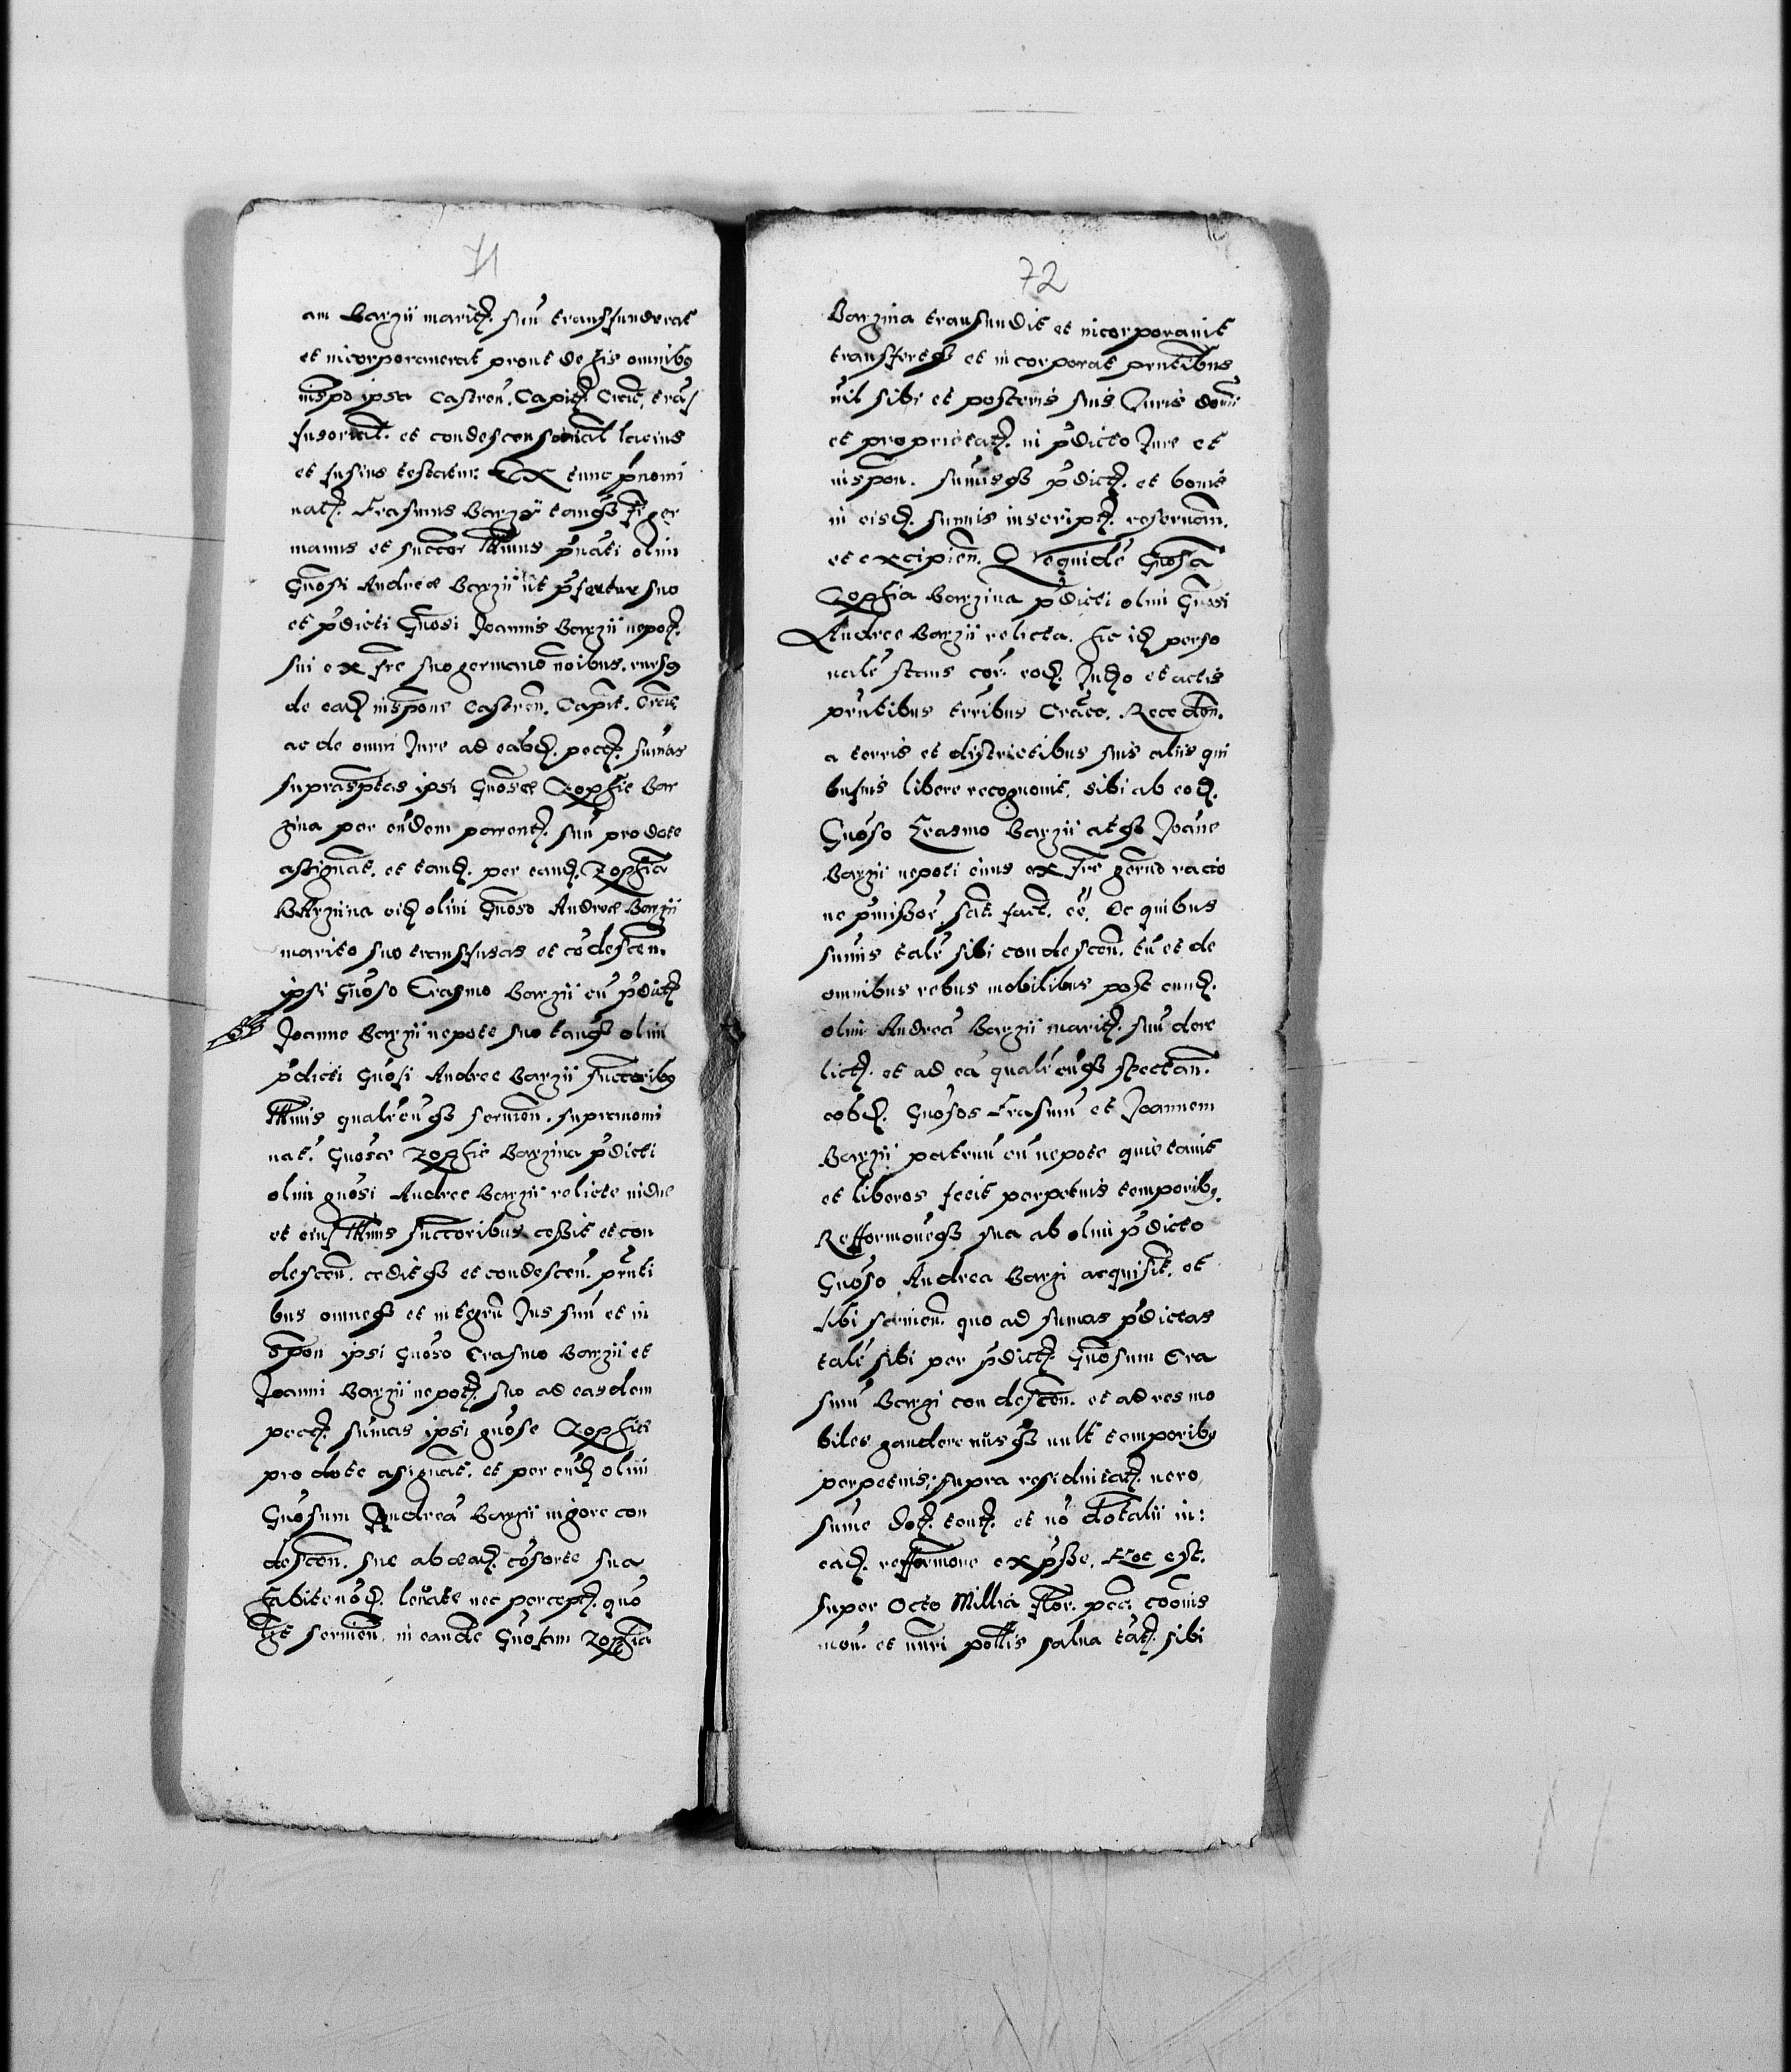 71
am Barzii marit. suu transfunderat
et incorporauerat prout de his omnibus
inspo ipsa Castren. Capit. Crac. tras
fusorial. et condescensorial lacius
et fusius testatur. Ex tunc pnomi
nat. Erasmus Barzii tanqz fr ger
manus et succor ltimus pnati olim
Gnosi Andreæ Barzii ut pfertur suo
et pdicti Gnosi Joannis Barzii nepot.
sui ex fre suo germano noibus. rursq
de ead inspone Castren. Capit. Crac.
ac de omni Jure ad easd. pecc. sumas
suprasptas ipsi Gnosæ Zophie Bar
zina per eudem parent. suu pro dote
assignat. et tand. per eand. Zophia
Barzina eid olim Gnoso Andreæ Barzii
marito suo transfusas et codescen.
ipsi Gnoso Erasmo Barzii cu pdict
Joanne Barzii nepote suo tanqz olim
pdicti Gnosi Andree Barzii succoribq
ltimis qualecuqz seruien. supranomi
nat. Gnosæ Zophie Barzina pdicti
olim gnosi Andree Barzii relicte uidue
et eius ltimis succoribus cessit et con
descen. cedit qz et condescen. pnti
bus omneqz et integru Jus suu et in
spon ipsi Gnoso Erasmo Barzii et
Joanni Barzii nepot. suo ad easdem
pecc. sumas ipsi gnose Zophie
pro dote asignat. et per eud olim
Gnosum Andrea Barzii uigore con
descen. sue ab ead. cosorte sua
habite nod. leuate nec percept. quo
lt seruien. in eande Gnosam Zophia
72
Barzina transundit et incorporauit
transfertqz et incorporat prntibus
nil sibi et posteris suis Juris domi
et proprietat. in pdicto Jure et
inspon. sumisqz pdict. et bonis
in eisd. sumis inscript. reseruan.
et excipien. Q requide Gnosa
Zophia Barzina pdicti olim Gnosi
Andree Barzii relicta. hic id perso
nalr stans cor. eod. Judo et actis
prntibus terribus Craco. Receden.
a terris et districtibus suis aliis qui
busuis libere recognouit. sibi ab eod.
Gnoso Erasmo Barzii atqz Joane
Barzii nepoti eius ex fre germo racio
ne pmissor. sat. fact. ee. De quibus
sumis tale sibi condescen. tu et de
omnibus rebus mobilibus post eund.
olim Andrea Barzii marit. suu dere
lict. et ad ea qualecuqz spectan.
eosd. Gnosos Erasmu et Joannem
Barzii patruu cu nepote quietauit
et liberos fecit perpetuis temporibq.
Reformoneqz sua ab olim pdicto
Gnoso Andrea Barzi acquisit. et
sibi seruien. quo ad sumas pdictas
tale sibi per pdict. Gnosum Era
smu Barzi condescen. et ad res mo
biles gaudere uusqz uult temporibq
perpetuis; supra residuitat. uero
sume dot. tant. et no dotalii in:
ead. reformone expsse. Hoc est.
super Octo Millia flor. pec. coonis
mon. et nuri pollis salua tat. sibi